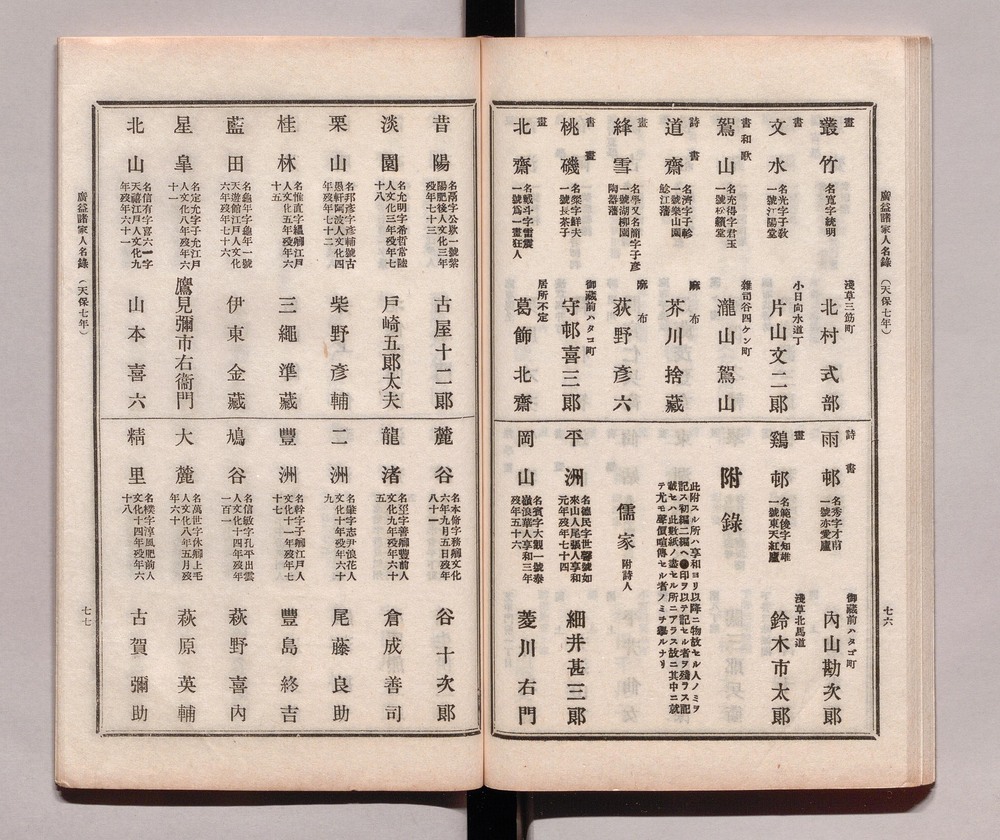 廣益諸家人名錄 (天保七年)
畫
叢竹
名寬字統明
淺草三筋町
北村式部
書
文水
名光字子敎
一號江陽堂
小日向水道丁
片山文二郞
書和歌
鴛山
名充得字君玉
一號松籟堂
雜司谷四ケン町
瀧山鴛山
詩書
道齋
名濟字子軫
一號樂山園
鯰江藩
麻布
芥川捨藏
畫
絳雪
名學又名簡字子彥
一號湖柳園
陶器藩
麻布
荻野彥六
書畫
桃磯
名粲字鮮夫
一號長茶子
御藏前ハタゴ町
守邨喜三郞
畫
北齋
名戴斗字雷震
一號爲一畫狂人
居所不定
葛飾北齋
詩書
雨邨
名秀字才甫
一號亦愛廬
御藏前ハタゴ町
內山勘次郞
畫
鷄邨
名範俊字知雄
一號東天紅廬
淺草北馬道
鈴木市太郞
附錄
此附スル所ハ享和ヨリ以降ニ物故セル人ノミヲ
記ス初編二編ヘ●印ヲ以テ記セル者ヲ殘ラス記
載セハ此數紙ノ盡セル所ニアラス故ニ其中ニ就
テ尤モ聲價喧傳セル者ノミヲ擧ルナリ
儒家 附詩人
平洲
名德民字世馨號如
來山人尾張人享和
元年歿年七十四
細井甚三郞
岡山
名賓字大觀一號泰
嶺浪華人享和三年
歿年五十六
菱川右門
七六
昔陽
名鬲字公欵一號紫
陽肥後人文化三年
歿年七十三
古屋十二郞
淡園
名允明字希哲常陸
人文化三年歿年七
十八
戶崎五郞太夫
栗山
名邦彥字彥輔號古
愚軒阿波人文化四
年歿年七十二
柴野彥輔
桂林
名惟直字繼觹江戶
人文化五年歿年六
十五
三繩準藏
藍田
名龜年字龜年一號
天遊館江戶人文化
六年歿年七十六
伊東金藏
星皐
名定允字子允江戶
人文化八年歿年六
十一
鷹見彌市右衞門
北山
名信有字喜六一字
天禧江戶人文化九
年歿年六十一
山本喜六
麓谷
名本脩字善觹文化
六年九月五日歿年
八十一
谷十次郞
龍渚
名巠字善觹豐前人
文化九年歿年六十
五
倉成善司
二洲
名肇字志尹浪花人
文化十年歿年六十
九
尾藤良助
豐洲
名幹字子觹江戶人
文化十一年歿年七
十七
豐島終吉
鳩谷
名信敏字孔平出雲
人文化十四年歿年
一百一
萩野喜內
大麓
名萬世字休觹上毛
人文化八年五月歿
年六十
萩原英輔
精里
名樸字淳風肥前人
文化十四年歿年六
十八
古賀彌助
廣益諸家人名錄 (天保七年)
七七